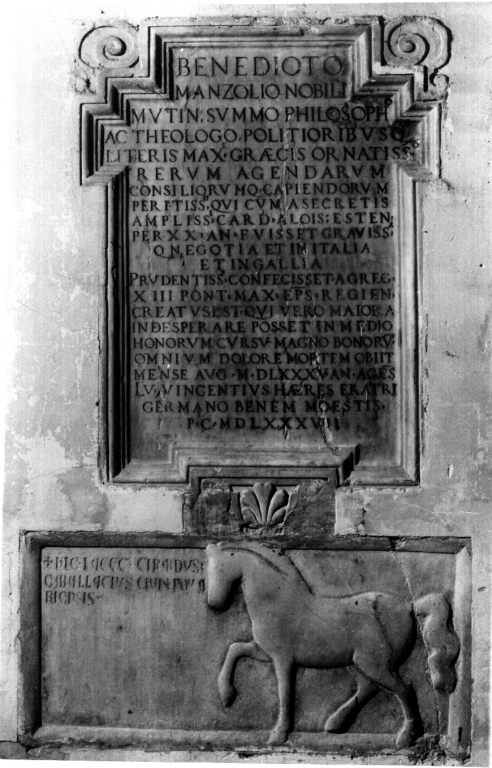 BENEDICTO
MANZOLIO NOBILI
MVTIN: SVMMO PHILOSOPH
AC THEOLOGO POLITIORIBVSQ
LITERIS MAX. GRÆCIS ORNATISS
RERVM AGENDARVM
CONSILIORVMQ. CAPIENDORVM
PERITISS. QVI CVM A SECRETIS
AMPLISS. CARD. ALOIS: ESTEN.
PER XX. AN. FVISSET GRAVISS.
Q NEGOTIA ET IN ITALIA
ET IN GALLIA
PRVDENTISS. CONFECISSET A GREG.
XIII PONT. MAX. EPS. REGIEN.
CREATVS EST. QVI VERO MAIORA
INDE SPERARE POSSET IN MEDIO
HONORVM CVRSV MAGNO BONORV
OMNIVM DOLORE MORTEM OBIIT
MENSE AVG. M.DLXXXV AN. AGES
LV. VINCENTIVS HÆRES FRATRI
GERMANO BENEM MOESTIS.
P.C. MDLXXXVII
+ HIC IACET